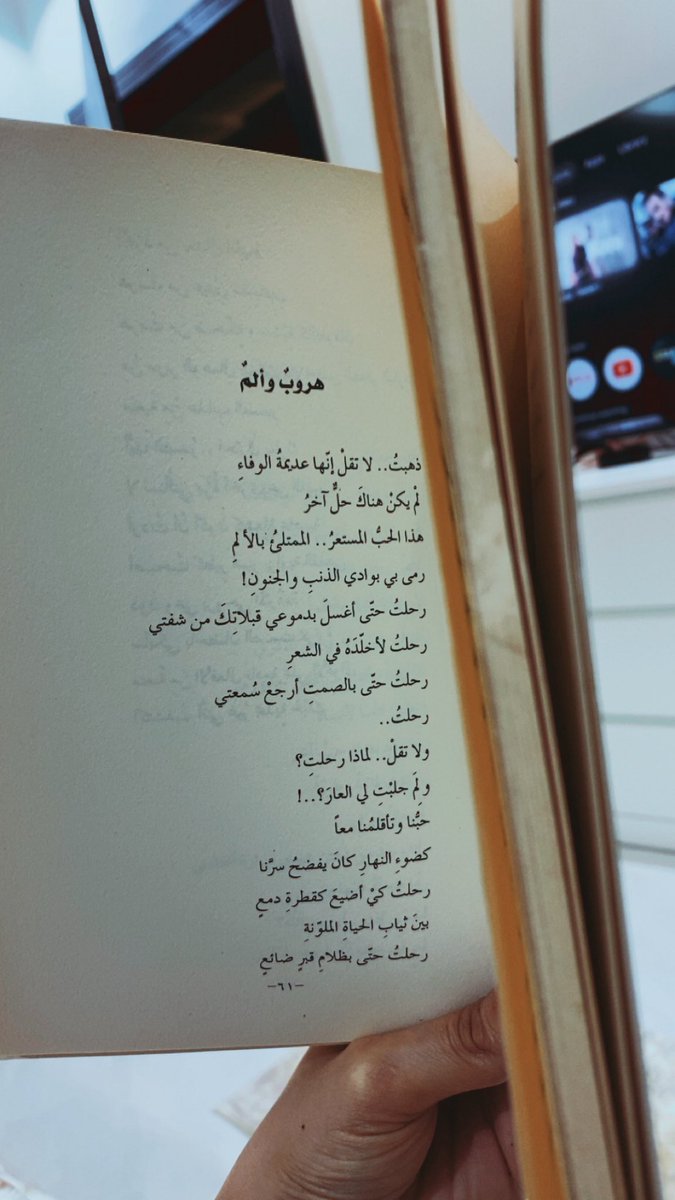 هروبٌ وألمٌ
ذهبتُ.. لا تقلْ إنّها عديمةُ الوفاءِ
لمْ يكنْ هناكَ حَلٌّ آخرُ
هذا الحبُّ المستعرُ.. الممتلئُ بالألمِ
رمى بي بوادي الذنبِ والجنونِ!
رحلتُ حتّى أغسلَ بدموعي قبلاتِكَ من شفتي
رحلتُ لأخلّدَهُ في الشعرِ
رحلتُ حتّى بالصمتِ أرجعْ سُمعتي
رحلتُ..
ولا تقلْ.. لماذا رحلتِ؟
ولِمَ جلبْتِ لي العارَ؟..!
حبُّنا وتأقلمُنا معاً
كضوءِ النهارِ كانَ يفضحُ سرَّنا
رحلتُ كيْ أضيعَ كقطرةِ دمعٍ
بينَ ثيابِ الحياةِ الملوّنةِ
رحلتُ حتّى بظلامِ قبرٍ ضائعٍ
-٦١-